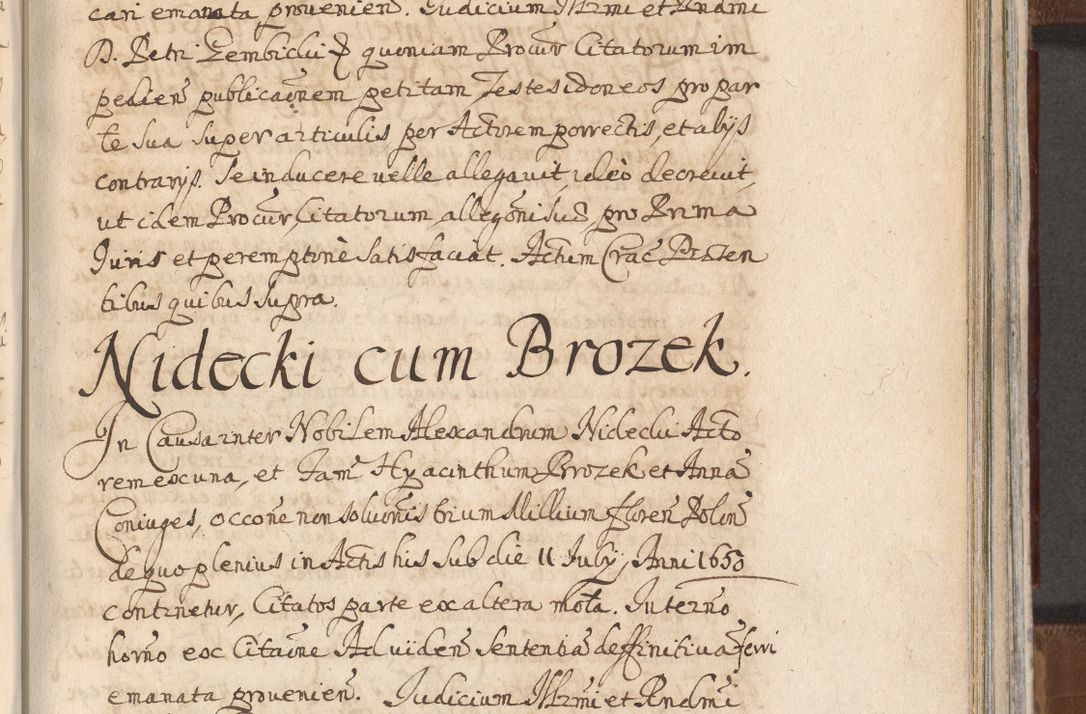 cari emanata provenien. Iudicium Illrmi et Rndmi
D. Petri Gembicki quoniam Procur Citatorum im
pediens publicaõnem petitam, Testes idoneos pro par
te sua super articulis per Actorem porrectis, et alijs
contrarijs. Se inducere velle allegavit, ideò decrevit,
ut idem Procur, Citatorum, pro Prima
Iuris et peremptoriè satisfaciat. Actum Crac Presen
tibus quibus supra.
Nidecki cum Brozek.
In Causa inter Nobilem Alexandrum Nidecki Acto
rem ex una, et Fam Hyacinthum Brozek et Anna
Coniuges, occõne non soluõnis trium Millium floren Polon
de quo plenius in Actis his sub die 11 July, Anni 1650
continetur, Citatos parte ex altera mota. In termõ
horno ex Citaõne Ad viden Sententia deffinitiva ferri
emanata provenien. Iudicium Illrmi et Rndmi